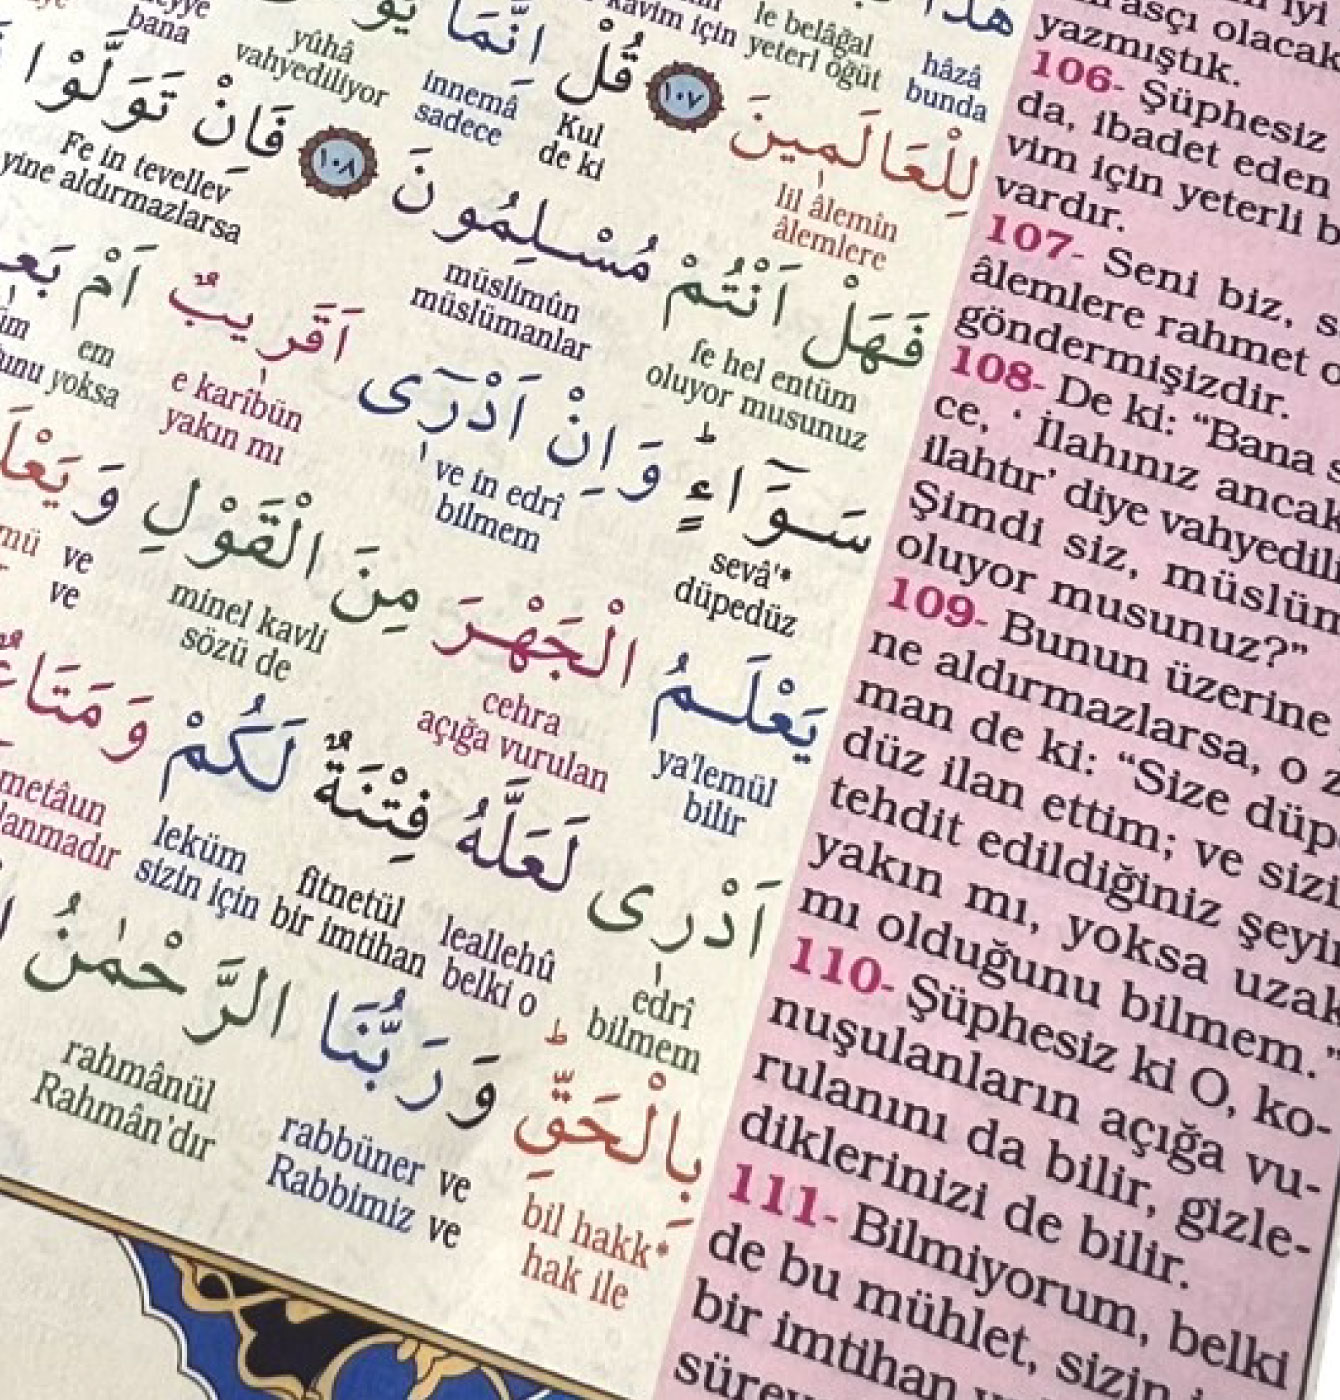 هٰذَا
hâzâ le belâğal kavim için
bunda yeterl öğüt
bana
لِلْعَالَمِينَ ١٠٧ قُلْ اِنَّمَا
lil âlemîn Kul innemâ yûhâ
âlemlere de ki sadece vahyediliyor
فَهَلْ اَنْتُمْ مُسْلِمُونَ ١٠٨ فَاِنْ تَوَلَّوْا
fe hel entüm müslimûn Fe in tevellev
oluyor musunuz müslümanlar yine aldırmazlarsa
سَوَٓاءٍ وَاِنْ اَدْرٓى اَقَرِيبٌ اَمْ
sevâ'* ve in edrî e karîbün em
düpedüz bilmem yakın mı yoksa
يَعْلَمُ الْجَهْرَ مِنَ الْقَوْلِ وَ
ya'lemül cehra minel kavli ve
bilir açığa vurulan sözü de ve
اَدْرٖى لَعَلَّهُ فِتْنَةٌ لَكُمْ وَمَتَاعٌ
edrî leallehû fitnetül leküm metâun
bilmem belki o bir imtihan sizin için
بِالْحَقِّ وَرَبُّنَا الرَّحْمٰنُ
bil hakk* ve rabbüner rahmânül
hak ile ve Rabbimiz Rahmân'dır
asçı olacak
yazmıştık.
106- Şüphesiz
da, ibadet eden
vim için yeterli b
vardır.
107- Seni biz, s
âlemlere rahmet o
göndermişizdir.
108- De ki: “Bana s
ce, ‘ İlahınız ancak
ilahtır’ diye vahyedili
Şimdi siz, müslüm
oluyor musunuz?”
109- Bunun üzerine
ne aldırmazlarsa, o z
man de ki: “Size düp
düz ilan ettim; ve sizi
tehdit edildiğiniz şeyin
yakın mı, yoksa uzak
mı olduğunu bilmem.”
110- Şüphesiz ki O, ko-
nuşulanların açığa vu-
rulanını da bilir, gizle-
diklerinizi de bilir.
111- Bilmiyorum, belki
de bu mühlet, sizin i
bir imtihan v
sürey